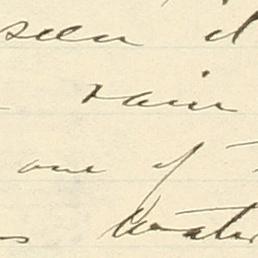 seen it
rain
one of
Water